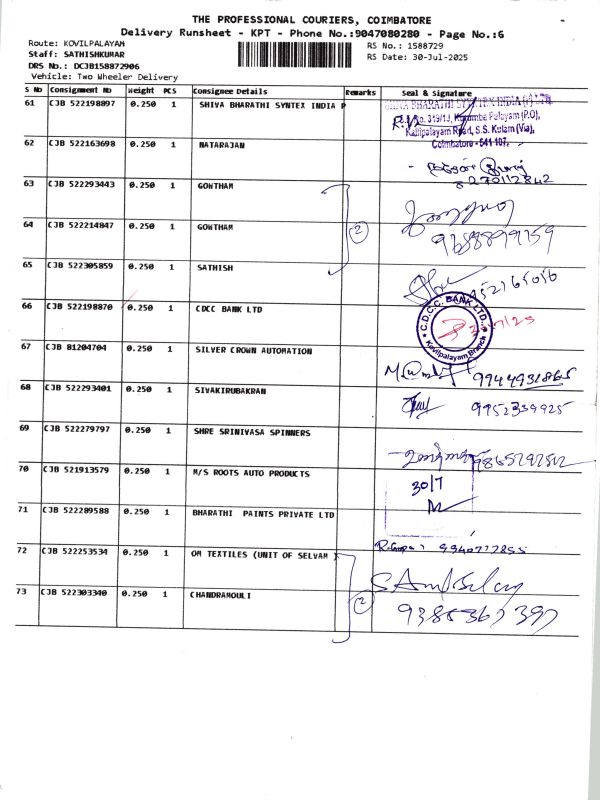 THE PROFESSIONAL COURIERS, COIMBATORE
Delivery Runsheet - KPT - Phone No.:9047080280 - Page No.:6
Route: KOVILPALAYAM
RS No.: 1588729
Staff: SATHISHKUMAR
RS Date: 30-Jul-2025
DRS No.: DCJB158872906
Vehicle: Two Wheeler Delivery
S No Consignment No Weight PCS Consignee Details Remarks Seal & Signature
61 CJB 522198897 0.250 1 SHIVA BHARATHI SYNTEX INDIA P
SHIVA BHARATHI SYNTEX INDIA (P) LTD
No. 319/1J, Kurumba Palayam (P.O),
Kalipalayam Road, S.S. Kulam (Via),
Coimbatore - 641 107.
62 CJB 522163698 0.250 1 NATARAJAN
63 CJB 522293443 0.250 1 GOWTHAM
2
64 CJB 522214847 0.250 1 GOWTHAM
65 CJB 522305859 0.250 1 SATHISH
66 CJB 522198870 0.250 1 CDCC BANK LTD
C.D.C.C. BANK LTD.
Kovilpalayam Branch
67 CJB 81204704 0.250 1 SILVER CROWN AUTOMATION
9944931865
68 CJB 522293401 0.250 1 SIVAKIRUBAKRAN
9952339925
69 CJB 522279797 0.250 1 SHRE SRINIVASA SPINNERS
70 CJB 521913579 0.250 1 M/S ROOTS AUTO PRODUCTS
30/7
71 CJB 522289588 0.250 1 BHARATHI PAINTS PRIVATE LTD
72 CJB 522253534 0.250 1 OM TEXTILES (UNIT OF SELVAM )
73 CJB 522303340 0.250 1 CHANDRAMOULI
2